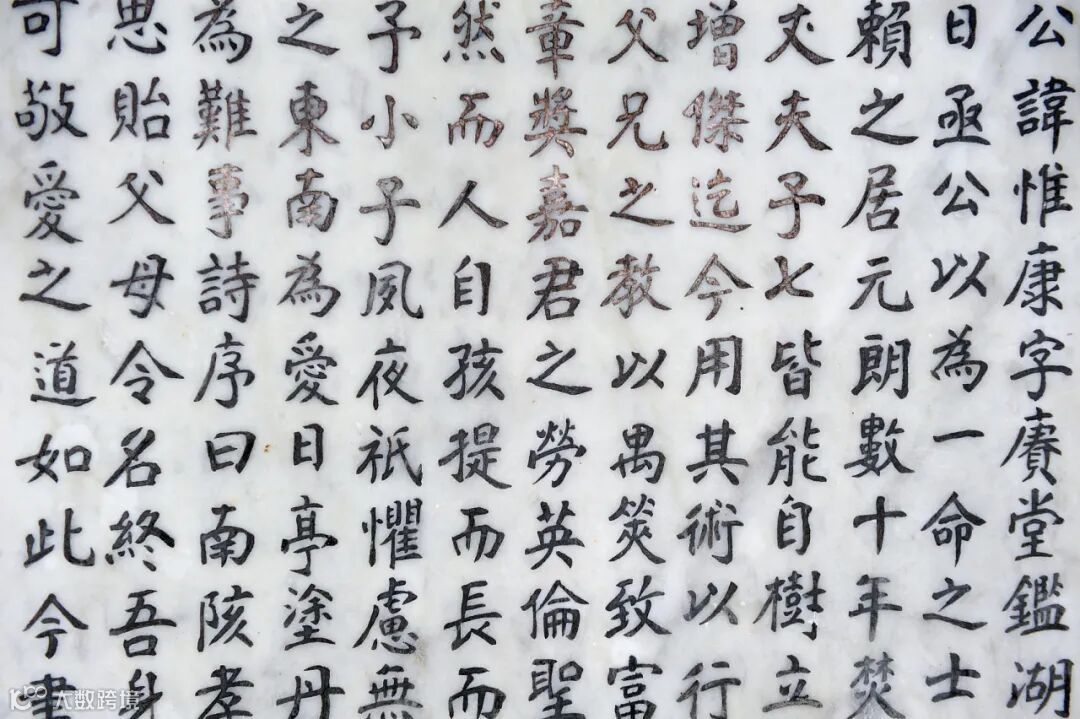 公諱惟康字賡堂鑑湖
日亟公以為一命之士
賴之居元朗數十年焚
丈夫子七皆能自樹立
增傑迄今用其術以行
父兄之教以禺筴致富
章奬嘉君之勞英倫聖
然而人自孩提而長而
予小子夙夜祇懼慮無
之東南為愛日亭塗丹
為難事詩序曰南陔孝
思貽父母令名終吾身
可敬愛之道如此今書
大数跨境